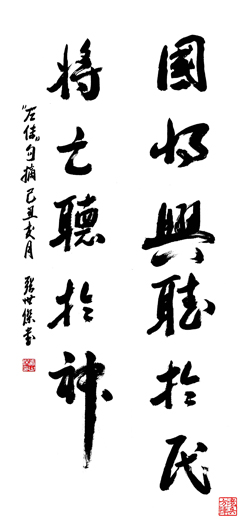 國将興聽於民
将亡聽於神
“左传”句摘己丑亥月 張世傑書